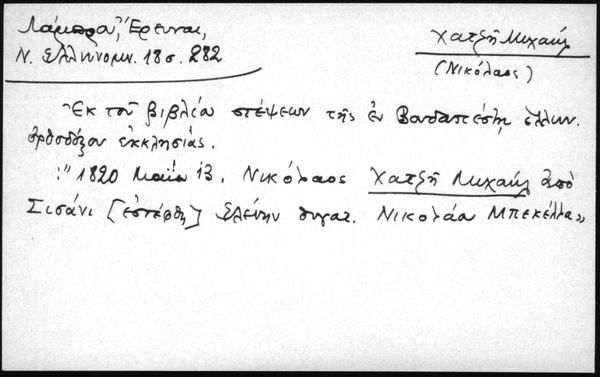 Λάμπρου, Ἔρευναι,
Ν. Ἑλληνομν. 18 σ. 282
Χατζῆ Μιχαήλ
(Νικόλαος)
Ἐκ τοῦ βιβλίου στέψεων τῆς ἐν Βουδαπέστῃ ἑλλην.
ὀρθοδόξου ἐκκλησίας.
:"1820 Μαΐου 13. Νικόλαος Χατζῆ Μιχαήλ ἀπὸ
Σισάνι [ἐστέφθη] Ἑλένην θυγατ. Νικολάου Μπεκέλλα»